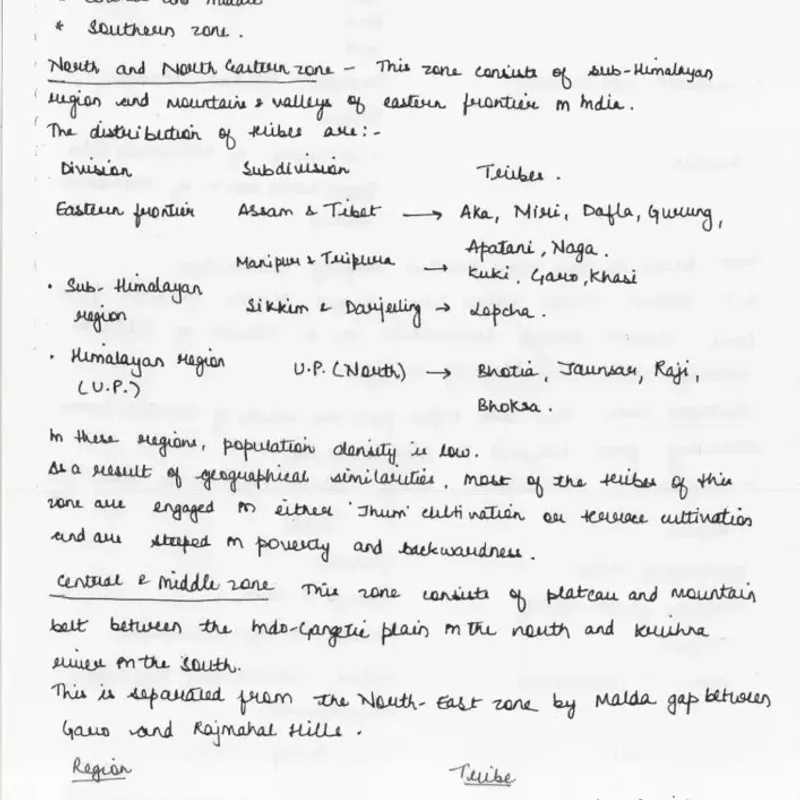 * Central and Middle
* Southern zone.
North and North Eastern zone - This zone consists of sub-Himalayan
region and mountains & valleys of eastern frontier in India.
The distribution of tribes are:-
Division Subdivision Tribes.
Eastern frontier Assam & Tibet → Aka, Miri, Dafla, Gurung,
Apatani, Naga.
Manipur & Tripura → Kuki, Garo, Khasi
• Sub-Himalayan region Sikkim & Darjeeling → Lapcha.
• Himalayan region (U.P.) U.P. (North) → Bhotia, Jaunsar, Raji,
Bhoksa.
In these regions, population density is low.
As a result of geographical similarities, most of the tribes of this
zone are engaged in either 'Jhum' cultivation or terrace cultivation
and are steeped in poverty and backwardness.
Central & middle zone This zone consists of plateau and mountain
belt between the Indo-Gangetic plain in the north and Krishna
river in the south.
This is separated from the North-East zone by Malda gap between
Garo and Rajmahal Hills.
Region Tribe